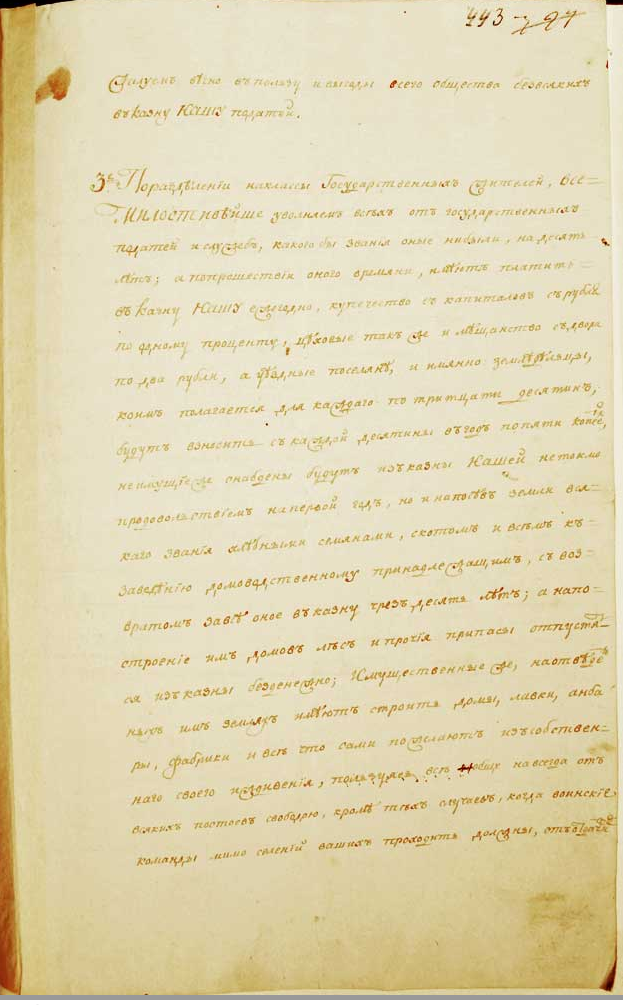 443
жалуемъ вѣчно въ пользу и выгоды всего общества безъ всякихъ
въ казну НАШУ податей.
3е По раздѣленiи на классы Государственныхъ жителей, все=
МИЛОСТИВѢЙШЕ увольняемъ всѣхъ отъ государственныхъ
податей и служебъ, какого бы званiя оные нибыли, на десять
лѣтъ; а по прошествiи оного времяни, имѣютъ платить
въ казну НАШУ ежегодно, купечество съ капиталовъ съ рубля
по одному проценту, цѣховые такъ же и мѣщанство съ двора
по два рубли, а уѣздные поселянѣ, и имянно земледѣльцы,
коимъ полагается для каждаго по тритцати десятинъ,
будутъ взносить съ каждой десятины въ годъ по пяти копѣекъ,
неимущiе же снабдены будутъ изъ казны НАШЕЙ не токмо
продовольствiемъ на первой годъ, но и на посѣвъ земли вся=
каго званiя хлѣбными семянами, скотомъ и всѣмъ къ=
заведѣнiю домоводственному принадлежащимъ, съ воз=
вратомъ за всѣ оное въ казну чрезъ десять лѣтъ; а на по=
строенiе имъ домовъ лѣсъ и прочiя припасы отпустят=
ся изъ казны безденежно; Имущественные же, на отведѣн
ныхъ имъ земляхъ имѣютъ строить домы, лавки, анба
ры, фабрики и всѣ что сами пожелаютъ изъ собствен=
наго своего иждивенiя, пользуяся всѣ вобще на всегда отъ
всякихъ постоевъ свободою, кромѣ тѣхъ случаевъ, когда воинскiе
команды мимо селенiй вашихъ проходить должны,